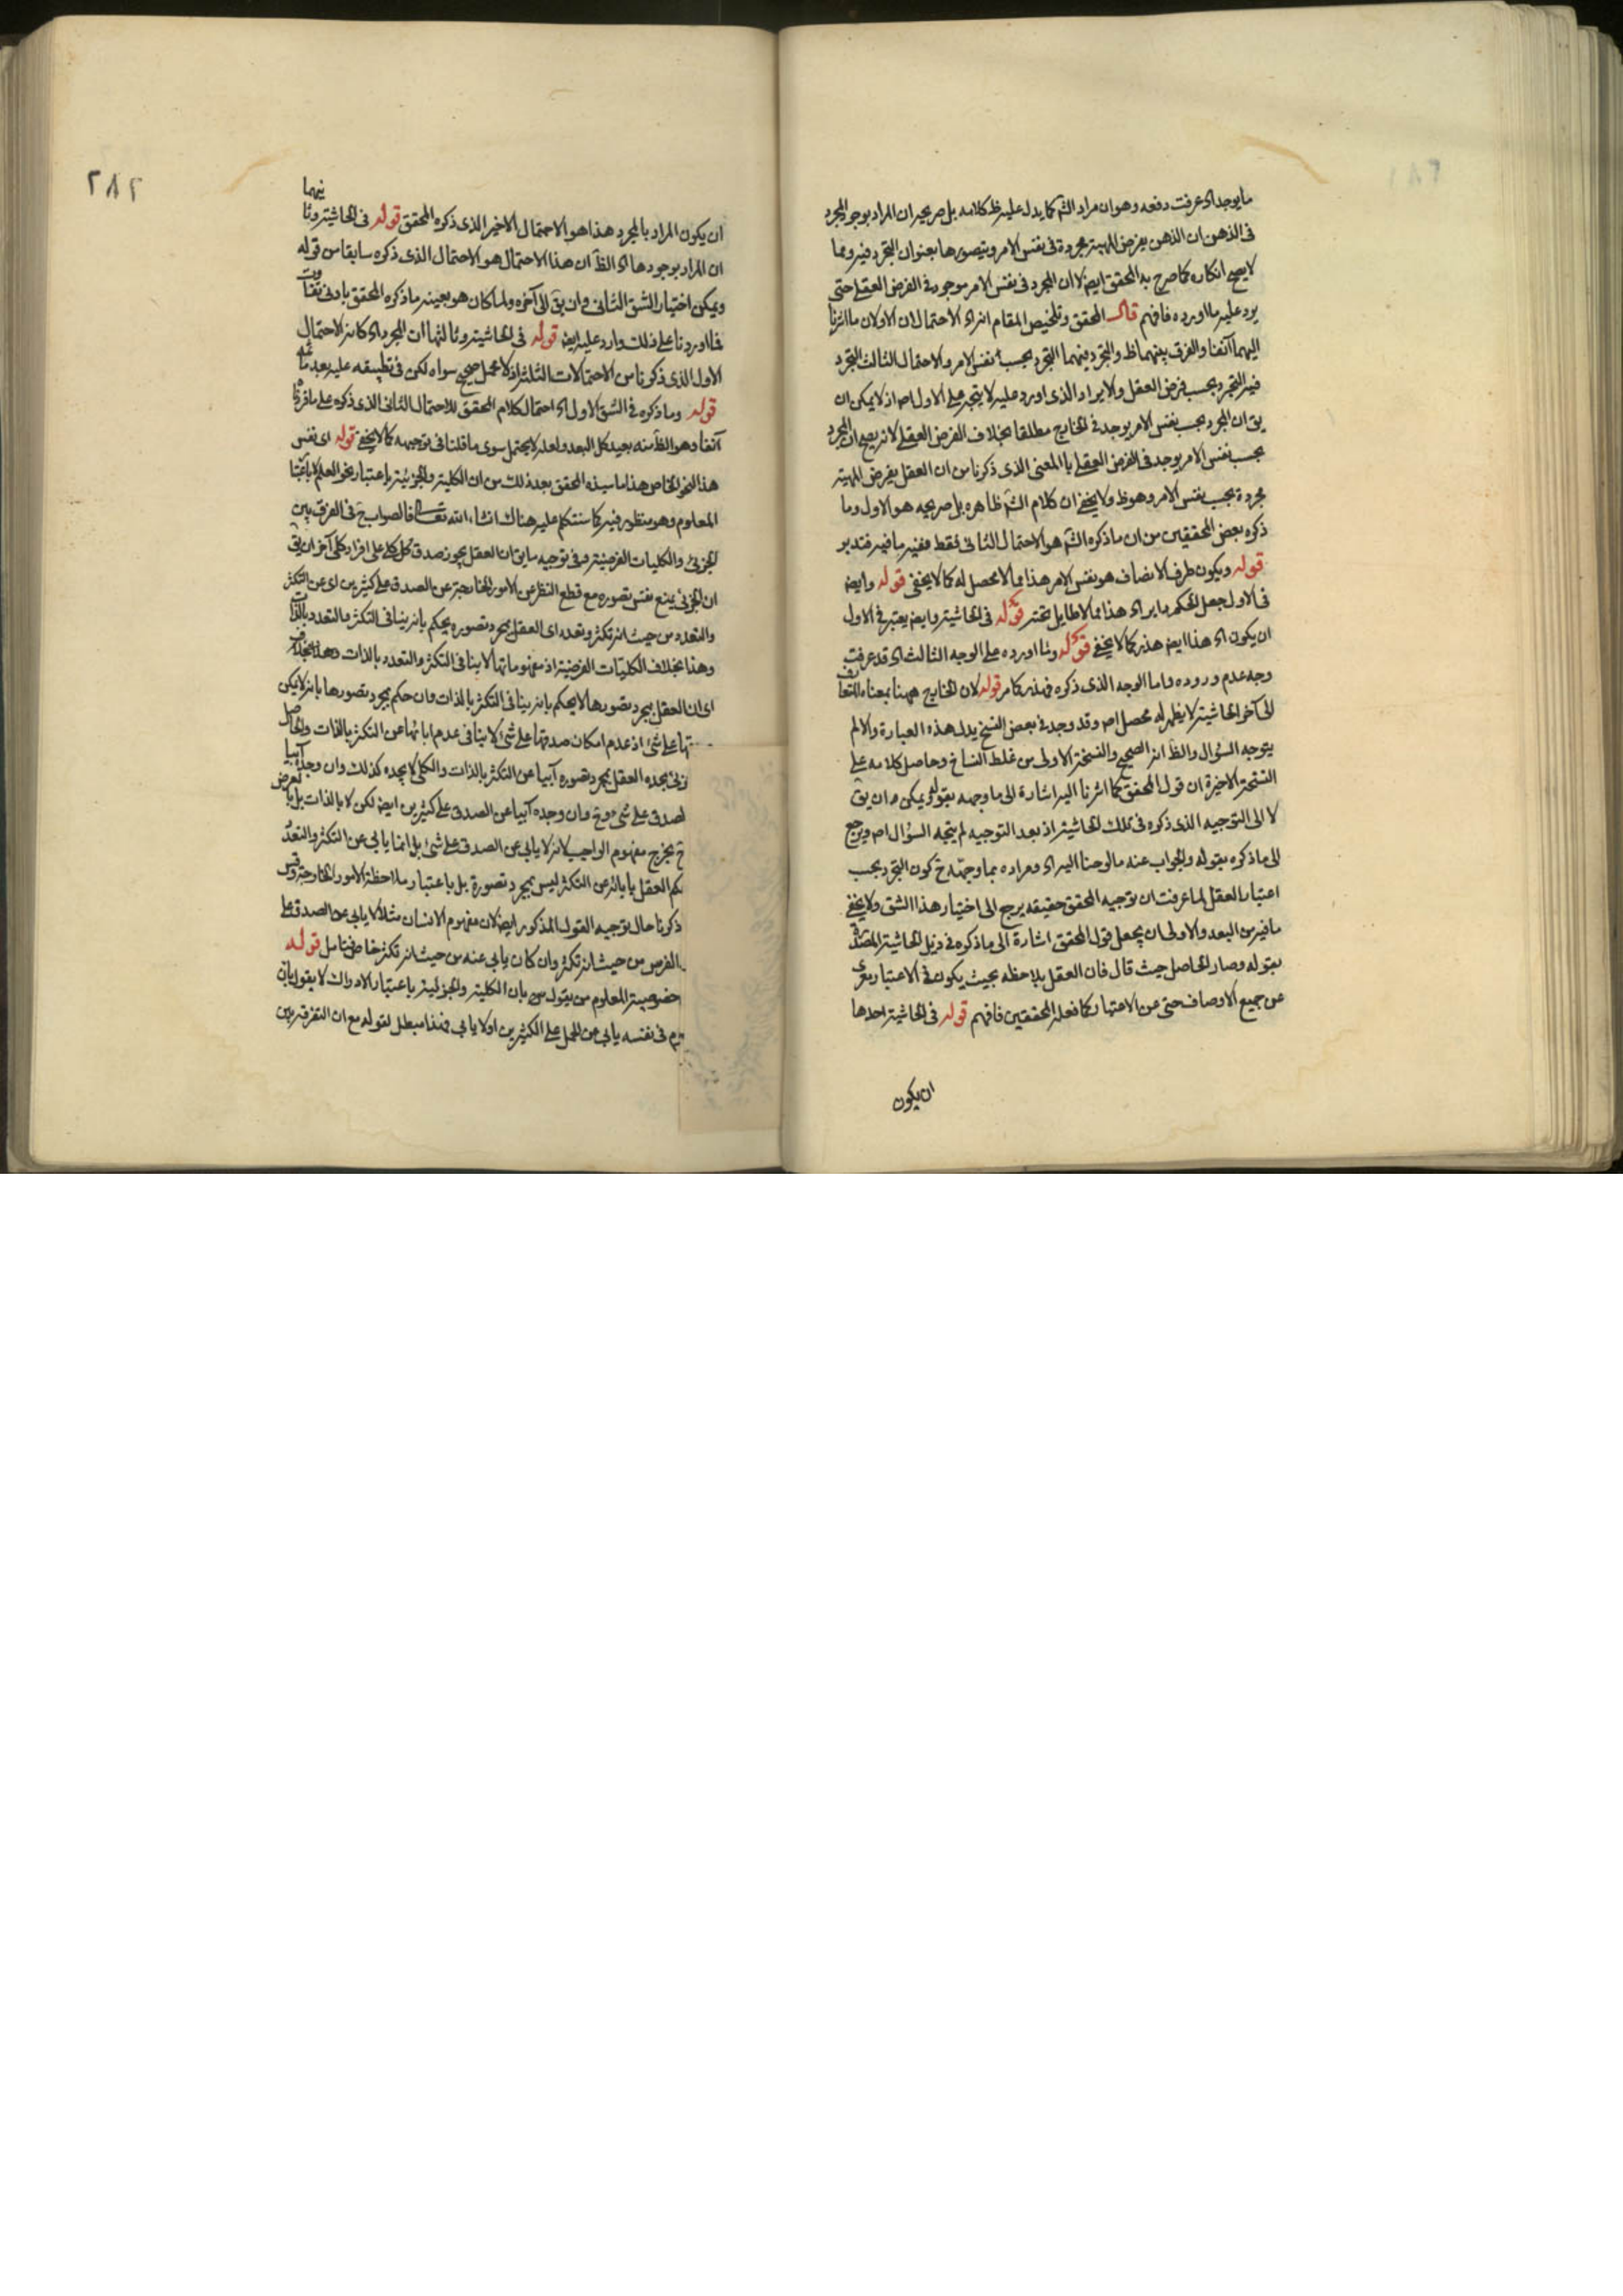 ما يوجد اه عرفت دفعه وهو ان مراد الشم كما يدل عليه ظ كلامه بل صريحه ان المراد بوجود المجرد
فى الذهن ان الذهن يفرض المهية مجردة فى نفس الامر ويتصورها بعنوان التجرد فيه ومما
لا يصح انكاره كما صرح به المحقق ايضا لا ان المجرد فى نفس الامر موجود فى الفرض العقلى حتى
يرد عليه ما اورده فافهم قال المحقق وتلخيص المقام انه اه الاحتمالان الاولان ما اشرنا
اليهما آنفا والفرق بينهما ظ والتجرد بينهما التجرد بحسب نفس الامر والاحتمال الثالث التجرد
فيه التجرد بحسب فرض العقل والايراد الذى اورد عليه لا يتجه على الاول اص اذ لا يمكن ان
يق ان المجرد بحسب نفس الامر يوجد فى الخارج مطلقا بخلاف الفرض العقلى لانه يصح ان المجرد
بحسب نفس الامر يوجد فى الفرض العقلى بالمعنى الذى ذكرنا من ان العقل يفرض المهية
مجردة بحسب نفس الامر وهو ظ ولا يخفى ان كلام الشم ظاهره بل صريحه هو الاول وما
ذكره بعض المحققين من ان ما ذكره الشم هو الاحتمال الثانى فقط ففيه ما فيه فتدبر
قوله ويكون ظرف الاتصاف هو نفس الامر هذا مما لا محصل له كما لا يخفى قوله وايض
فى الاول جعل الحكم ما يراه هذا مما لا طايل تحته قوله فى الحاشية وايض يعتبر فى الاول
ان يكون اه هذا ايض هذر كما لا يخفى قوله وثا اورده على الوجه الثالث اه قد عرفت
وجه عدم وروده واما الوجه الذى ذكره فهذر كما مر قوله لان الخارج ههنا بمعناه المتعارف
الى آخر الحاشية لا يظهر له محصل اص وقد وجد فى بعض النسخ بدل هذه العبارة والا لم
يتوجه السؤال والظ انه الصحيح والنسخة الاولى من غلط النساخ وحاصل كلامه على
النسخة الاخيرة ان قول المحقق كما اشرنا اليه اشارة الى ما وجهه بقوله ويمكن ان يق
لا الى التوجيه الذى ذكره فى تلك الحاشية اذ بعد التوجيه لم يتجه السؤال اص ويرجع
الى ما ذكره بقوله والجواب عنه ما لوحنا اليه اه ومراده بما وجهه ح كون التجرد بحسب
اعتبار العقل لما عرفت ان توجيه المحقق حقيقه يرجع الى اختيار هذا الشق ولا يخفى
ما فيه من البعد والاولى ان يجعل قول المحقق اشارة الى ما ذكره فى ذيل الحاشية المصدرة
بقوله وصار الحاصل حيث قال فان العقل يلاحظه بحيث يكون فى الاعتبار معرى
عن جميع الاوصاف حتى عن الاعتبار كما فعله المحققين فافهم قوله فى الحاشية احدها
ان يكون
٢٨٢
فيهما
ان يكون المراد بالمجرد هذا هو الاحتمال الاخير الذى ذكره المحقق قوله فى الحاشية وثا
ان المراد بوجودها اه الظ ان هذا الاحتمال هو الاحتمال الذى ذكره سابقا من قوله
ويمكن اختيار الشق الثانى وان يق الى آخره ولما كان هو بعينه ما ذكره المحقق بادنى تفاوت
فما اوردنا على ذلك وارد عليه ايض قوله فى الحاشية وثالثها ان المجرد اه كانه الاحتمال
الاول الذى ذكرنا من الاحتمالات الثلثة اذ لا محمل صحيح سواه لكن فى تطبيقه عليه بعد
قوله وما ذكره فى الشق الاول اه احتمال كلام المحقق للاحتمال الثانى الذى ذكره على ما قررنا
آنفا وهو الظ منه بعيد كل البعد ولعله لا يحتمل سوى ما قلنا فى توجيهه كما لا يخفى قوله اى نفس
هذا النحو الخاص هذا ما سيذكره المحقق بعد ذلك من ان الكلية والجزئية باعتبار نحو العلم لا باعتبار
المعلوم وهو منظور فيه كما سنتكلم عليه هناك انشاء الله تعالى فالصواب ح فى الفرق بين
الجزئى والكليات الفرضية وفى توجيه ما يق ان العقل يجوز صدق كل كلى على افراد كلى آخر ان يق
ان الجزئى يمنع نفس تصوره مع قطع النظر عن الامور الخارجة عن الصدق على كثيرين اى عن التكثر
والتعدد من حيث انه تكثر وتعدد اى العقل بمجرد تصوره يحكم بانه ينافى التكثر والتعدد بالذات
وهذا بخلاف الكليات الفرضية اذ مفهوماتها لا ينافى التكثر والتعدد بالذات
اى ان العقل بمجرد تصورها لا يحكم بانه ينافى التكثر بالذات وان حكم بمجرد تصورها بانه لا يمكن
تها على شئ اذ عدم امكان صدقها على شئ لا ينافى عدم ابائها عن التكثر بالذات والحاصل
زئى يجده العقل بمجرد تصوره آبيا عن التكثر بالذات والكلى لا يجده كذلك وان وجده آبيا
لصدق على شئ وح وان وجده آبيا عن الصدق على كثيرين ايض لكن لا بالذات بل بالعرض
ح يخرج مفهوم الواجب لانه لا يابى عن الصدق على شئ بل انما يابى عن التكثر والتعدد
كم العقل بابائه عن التكثر ليس بمجرد تصوره بل باعتبار ملاحظة الامور الخارجة وقس
ذكرنا حال توجيه القول المذكور ايض لان مفهوم الانسان مثلا لا يابى عن الصدق على
الفرس من حيث انه تكثر وان كان يابى عنه من حيث انه تكثر خاص فتامل قوله
خصوصية المعلوم من يقول بان الكلية والجزئية باعتبار الادراك لا يقول بان
وم فى نفسه يابى عن الحمل على الكثيرين او لا يابى فهذا مبطل لقوله مع ان التفرقة بين